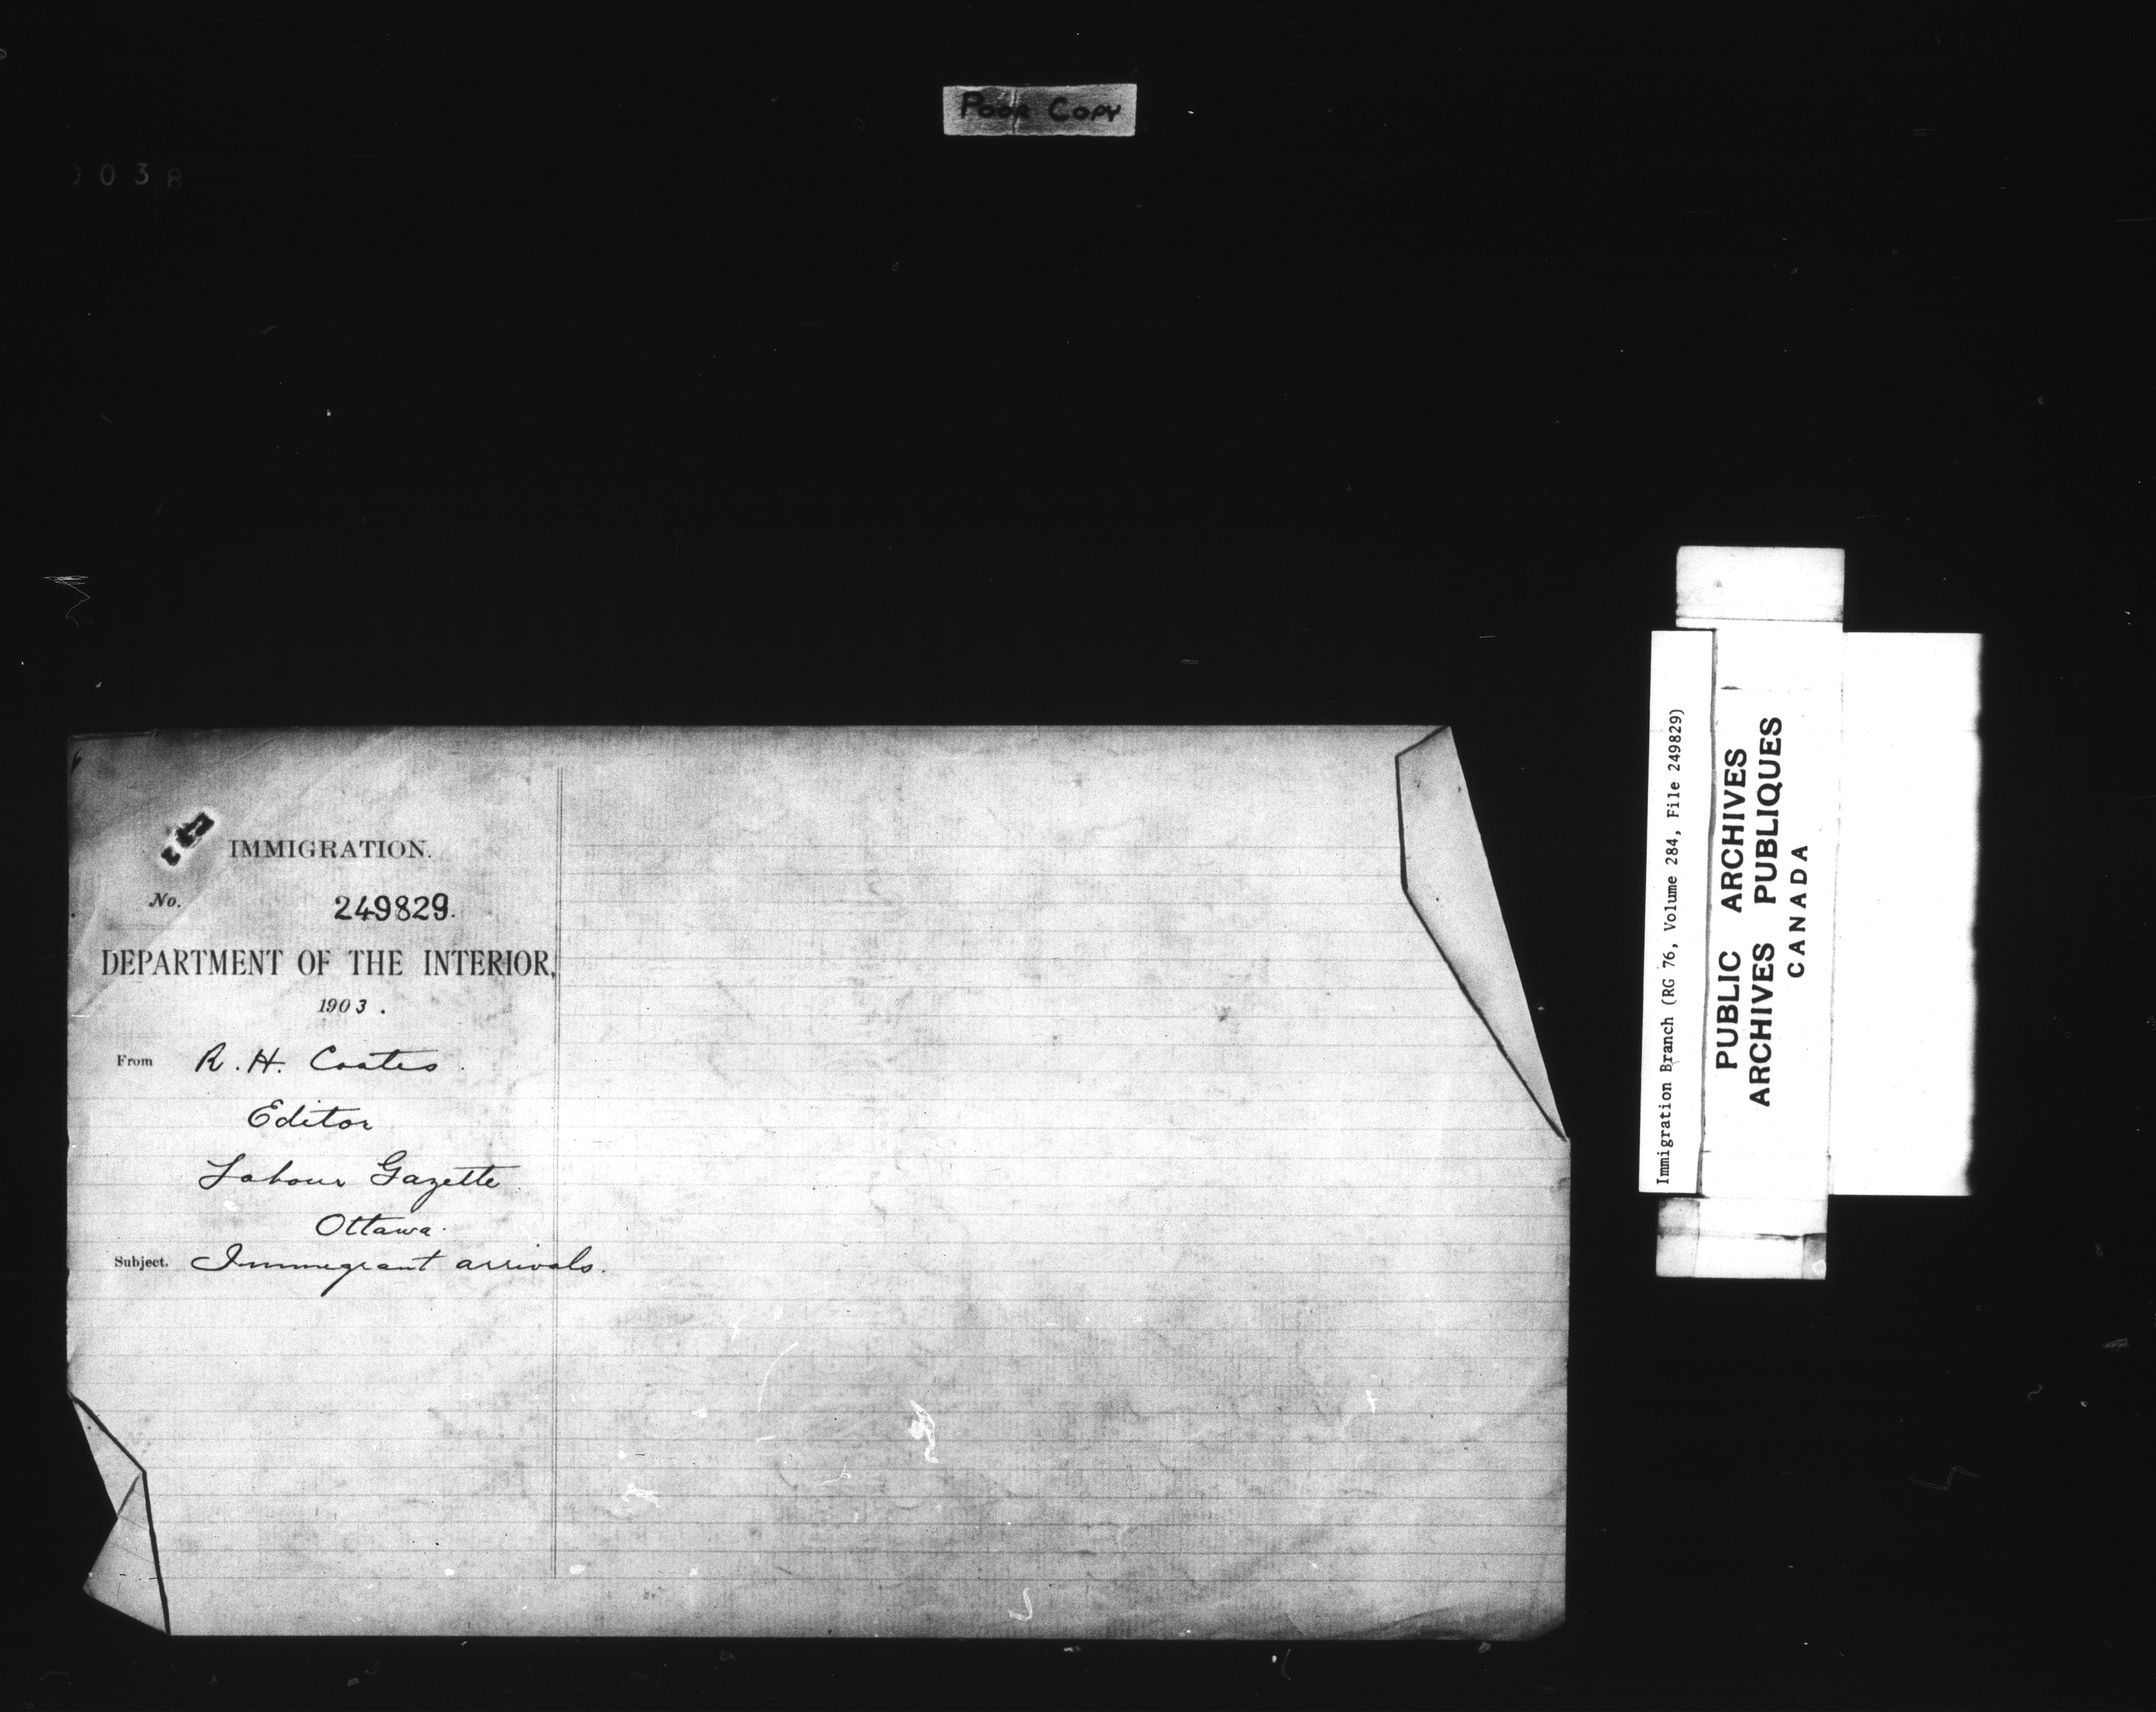 Poor Copy
IMMIGRATION.
No. 249829.
DEPARTMENT OF THE INTERIOR,
1903.
From R. H. Coates.
Editor
Labour Gazette
Ottawa.
Subject. Immigrant arrivals.
Immigration Branch (RG 76, Volume 284, File 249829)
PUBLIC ARCHIVES
ARCHIVES PUBLIQUES
CANADA